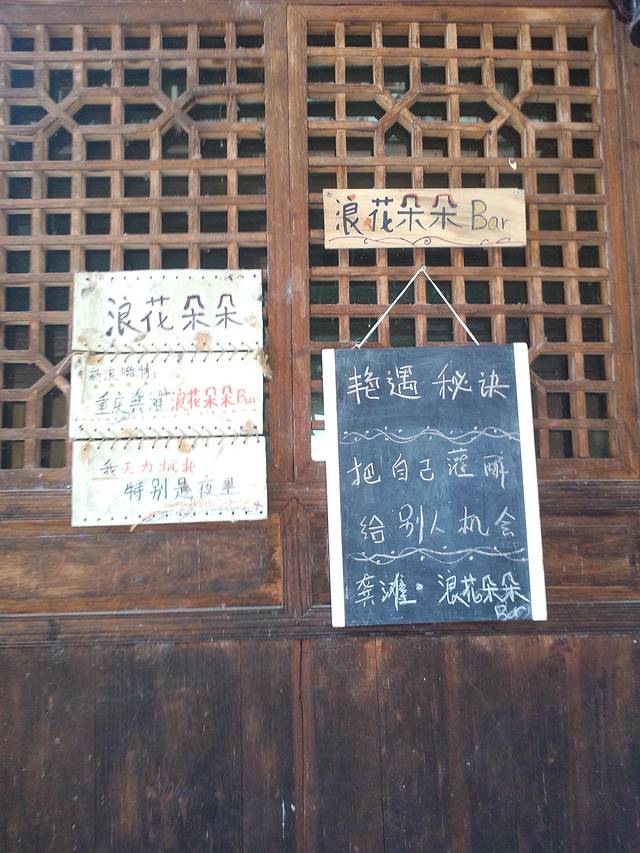 浪花朵朵 Bar
浪花朵朵
新浪微博:
重庆龚滩浪花朵朵Bar
我无力抗拒
特别是夜里
艳遇 秘诀
把自己灌醉
给别人机会
龚滩·浪花朵朵
Bar